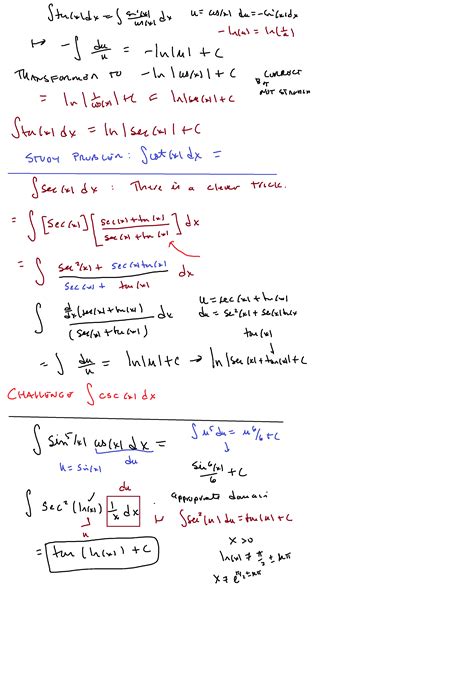 ∫tan(x)dx = ∫ sin(x)/cos(x) dx   u = cos(x) du = -sin(x)dx
-ln(u) = ln(1/u)
↦ -∫ du/u = -ln|u| + C
TRANSFORMATION TO -ln|cos(x)| + C   CORRECT BUT NOT STANDARD
= ln|1/cos(x)| + C = ln|sec(x)| + C
∫tan(x)dx = ln|sec(x)| + C
STUDY PROBLEM: ∫cot(x)dx =
∫sec(x)dx : There is a clever trick.
= ∫[sec(x)][(sec(x)+tan(x))/(sec(x)+tan(x))]dx
= ∫ (sec²(x) + sec(x)tan(x))/(sec(x) + tan(x)) dx
∫ (d/dx(sec(x)+tan(x)))/(sec(x)+tan(x)) dx   u = sec(x)+tan(x)
du = sec²(x) + sec(x)tan(x)
= ∫ du/u = ln|u| + C → ln|sec(x)+tan(x)| + C
CHALLENGE ∫csc(x)dx
∫sin⁵(x) cos(x)dx =   ∫u⁵du = u⁶/6 + C
u = sin(x)   du   ↓
sin⁶(x)/6 + C
du
∫sec²(ln(x)) 1/x dx : appropriate domain
u   ↦ ∫sec²(u)du = tan(u) + C
= tan(ln(x)) + C   x > 0
ln(x) ≠ π/2 ± kπ
x ≠ e^(π/2 ± kπ)